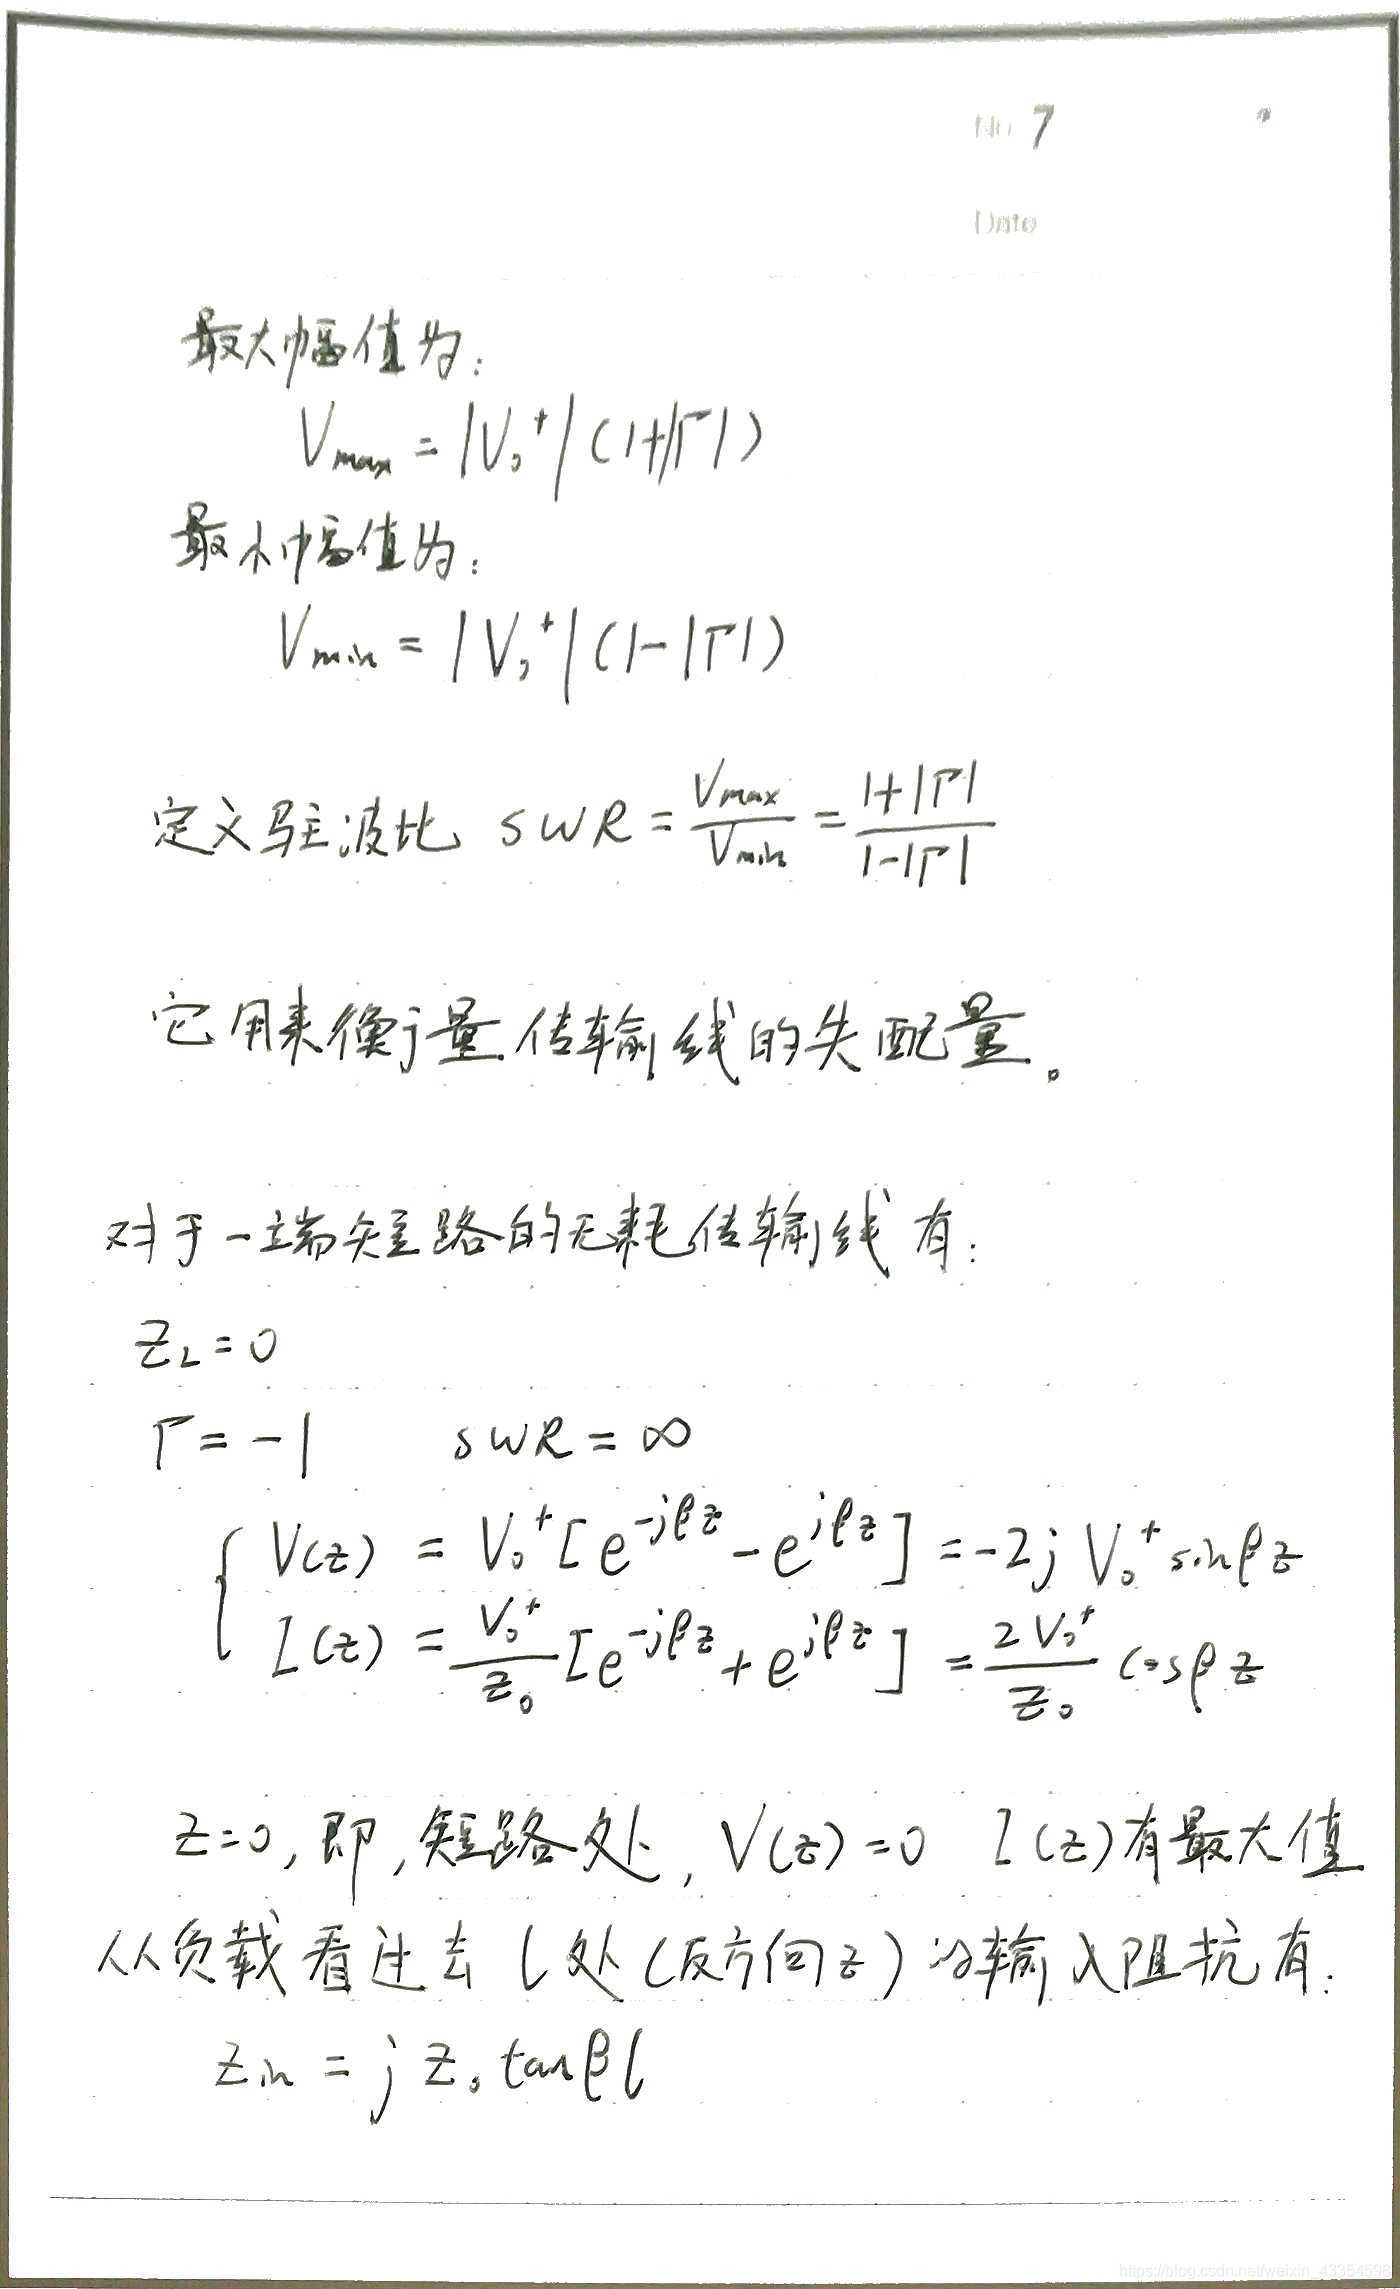 No 7
Date
最大幅值为:
Vmax = |V₀⁺| (1+|Γ|)
最小幅值为:
Vmin = |V₀⁺| (1-|Γ|)
定义驻波比 SWR = Vmax/Vmin = 1+|Γ|/1-|Γ|
它用来衡量传输线的失配量。
对于一端短路的无耗传输线有:
Z_L = 0
Γ = -1 SWR = ∞
V(z) = V₀⁺[e^{-jβz} - e^{jβz}] = -2j V₀⁺ sinβz
I(z) = V₀⁺/Z₀ [e^{-jβz} + e^{jβz}] = 2V₀⁺/Z₀ cosβz
z=0, 即, 短路处, V(z)=0 I(z)有最大值
从负载看过去 l 处 (反方向z) 的输入阻抗有:
Zin = j Z₀ tanβl
https://blog.csdn.net/weixin_43354598